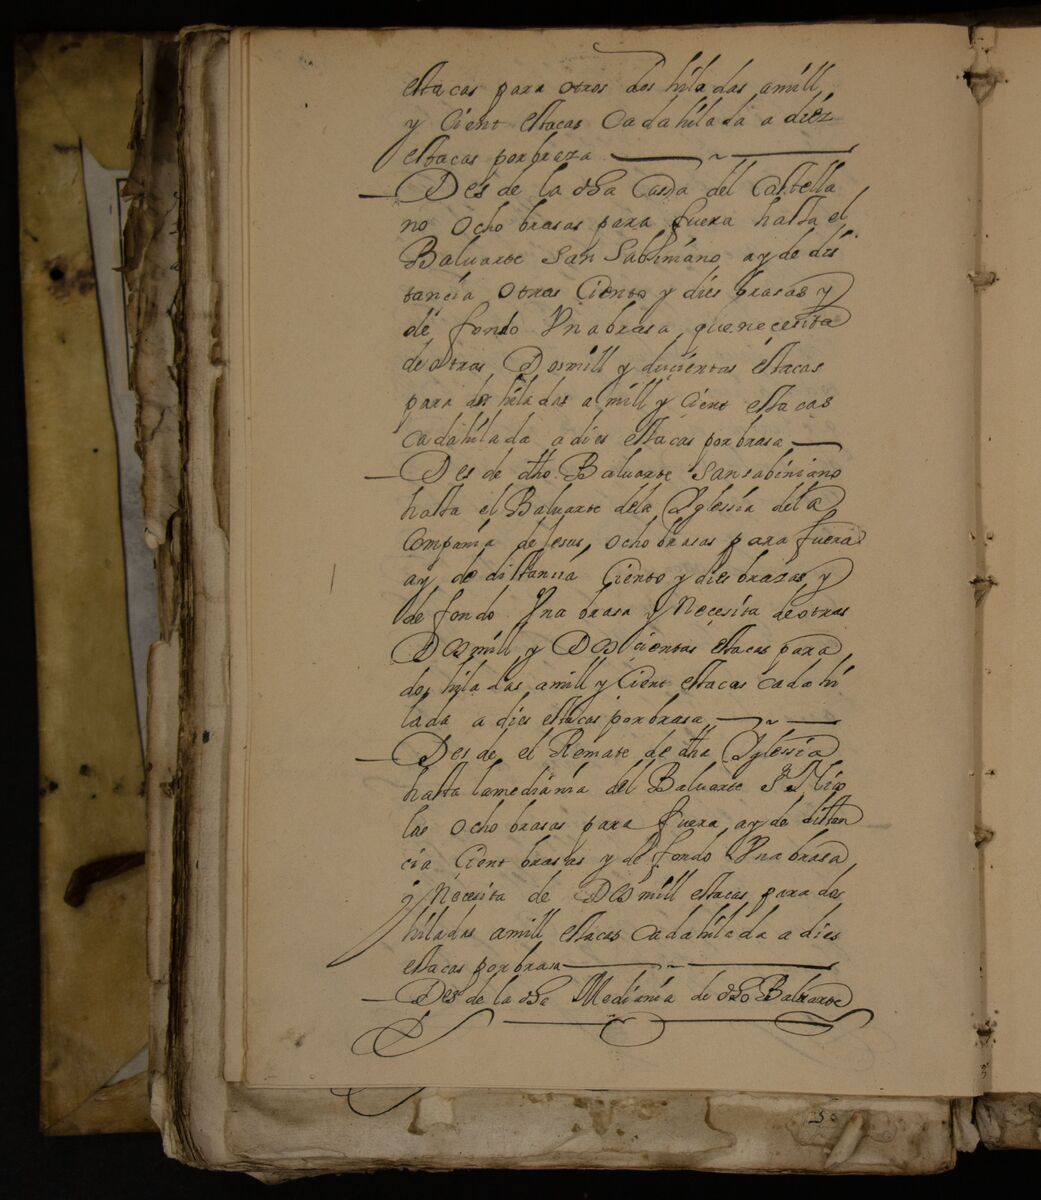 estacas para otros dos hiladas amill
y Cient estacas Cadahilada a diez
estacas porbraza
Des de la dha Casa del Castella
no Ocho brasas para fuera hasta el
Baluarte San Sabiniano ay de dis
tancia Otras Ciento y dies brasas y
de fondo Vna brasa que necesita
de otras Dosmill y ducientas estacas
para dos hiladas a mill y Cient estacas
cadahilada a dies estacas porbrasa
Des de dho Baluarte Sansabiniano
hasta el Baluarte dela Yglessia dela
Compania de Jesus, ocho brasas para fuera
ay de distancia Ciento y dies brazas y
de fondo Vna brasa y Necesita de otras
Dosmill y Doscientas estacas para
dos hiladas amill y Cient estacas Cadahi
lada a dies estacas porbrasa
Desde el Remate de dha Yglessia
hasta lamediania del Baluarte Sn Nico
las Ocho brasas para fuera ay de distan
cia Cient brasas y de fondo Vna brasa
q Necesita de Dosmill estacas para dos
hiladas amill estacas Cadahilada a dies
estacas porbrasa
Des de la dha Mediania de dho Baluarte